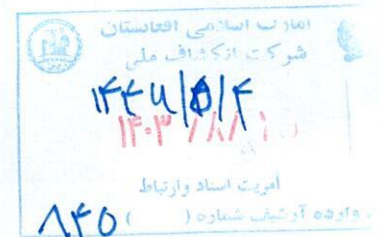 امارت اسلامی افغانستان
شرکت انکشاف ملی
۱۴۴۷/۵/۴
۱۴۰۳/۸/۱
آمریت اسناد وارتباط
وارده آرشیف شماره ( ) ۸۴۵